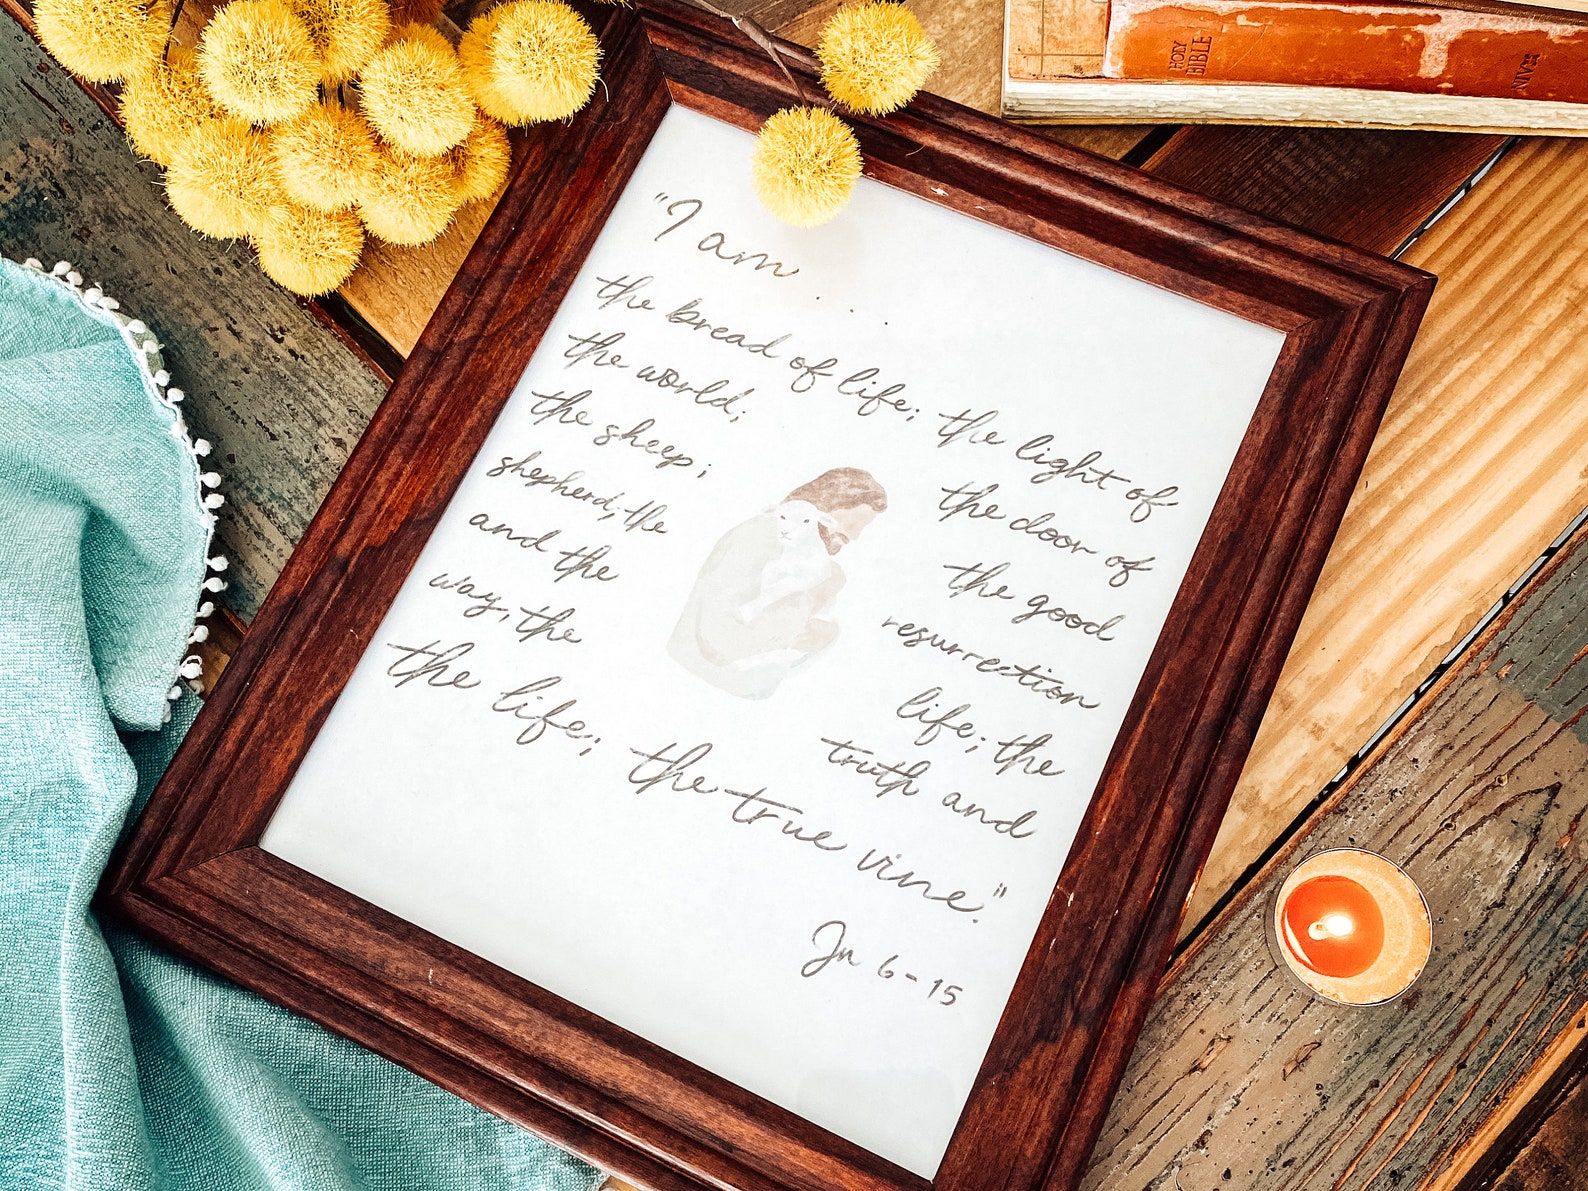 HOLY
BIBLE
NIV
"I am . . .
the bread of life; the light of
the world; the door of
the sheep; the good
shepherd; the resurrection
and the life; the
way, the truth and
the life; the true vine."
Jn 6-15